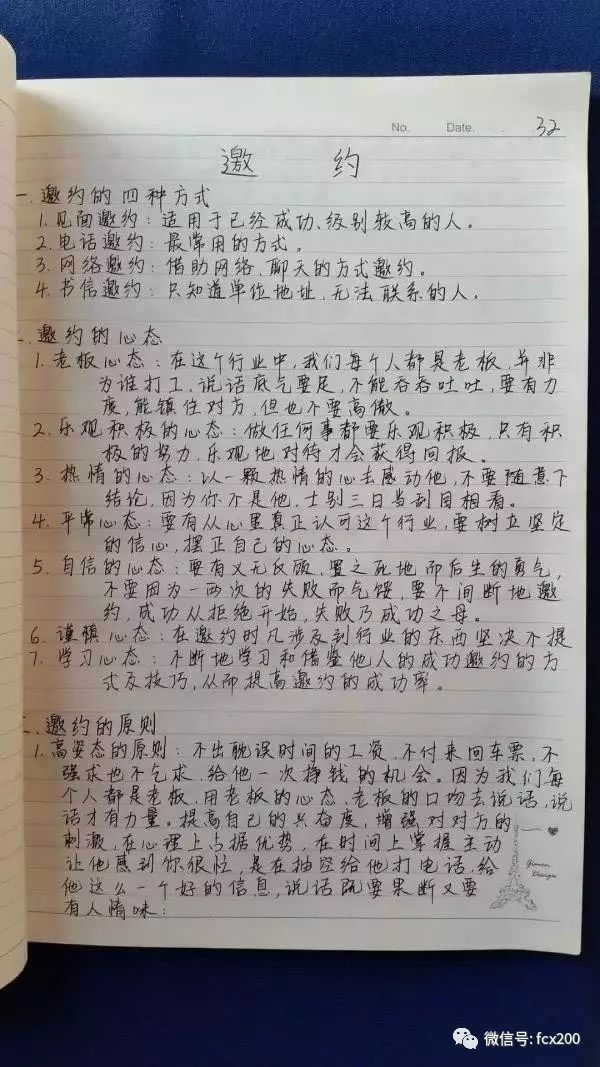 No. Date. 32
邀 约
一. 邀约的四种方式
1. 见面邀约：适用于已经成功、级别较高的人。
2. 电话邀约：最常用的方式。
3. 网络邀约：借助网络、聊天的方式邀约。
4. 书信邀约：只知道单位地址，无法联系的人。
二. 邀约的心态
1. 老板心态：在这个行业中，我们每个人都是老板，并非
为谁打工，说话底气要足，不能吞吞吐吐，要有力
度，能镇住对方，但也不要高傲。
2. 乐观积极的心态：做任何事都要乐观积极，只有积
极的努力，乐观地对待才会获得回报。
3. 热情的心态：以一颗热情的心去感动他，不要随意下
结论，因为你不是他，士别三日当刮目相看。
4. 平常心态：要有从心里真正认可这个行业，要树立坚定
的信心，摆正自己的心态。
5. 自信的心态：要有义无反顾，置之死地而后生的勇气，
不要因为一两次的失败而气馁，要不间断地邀
约，成功从拒绝开始，失败乃成功之母。
6. 谨慎心态：在邀约时凡涉及到行业的东西坚决不提
7. 学习心态：不断地学习和借鉴他人的成功邀约的方
式及技巧，从而提高邀约的成功率。
三. 邀约的原则
1. 高姿态的原则：不出耽误时间的工资，不付来回车票，不
强求也不乞求，给他一次挣钱的机会。因为我们每
个人都是老板，用老板的心态、老板的口吻去说话，说
话才有力量。提高自己的兴奋度，增强对对方的
刺激，在心理上占据优势，在时间上掌握主动
让他感到你很忙，是在抽空给他打电话，给
他这么一个好的信息，说话既要果断又要
有人情味：
Design
微信号: fcx200